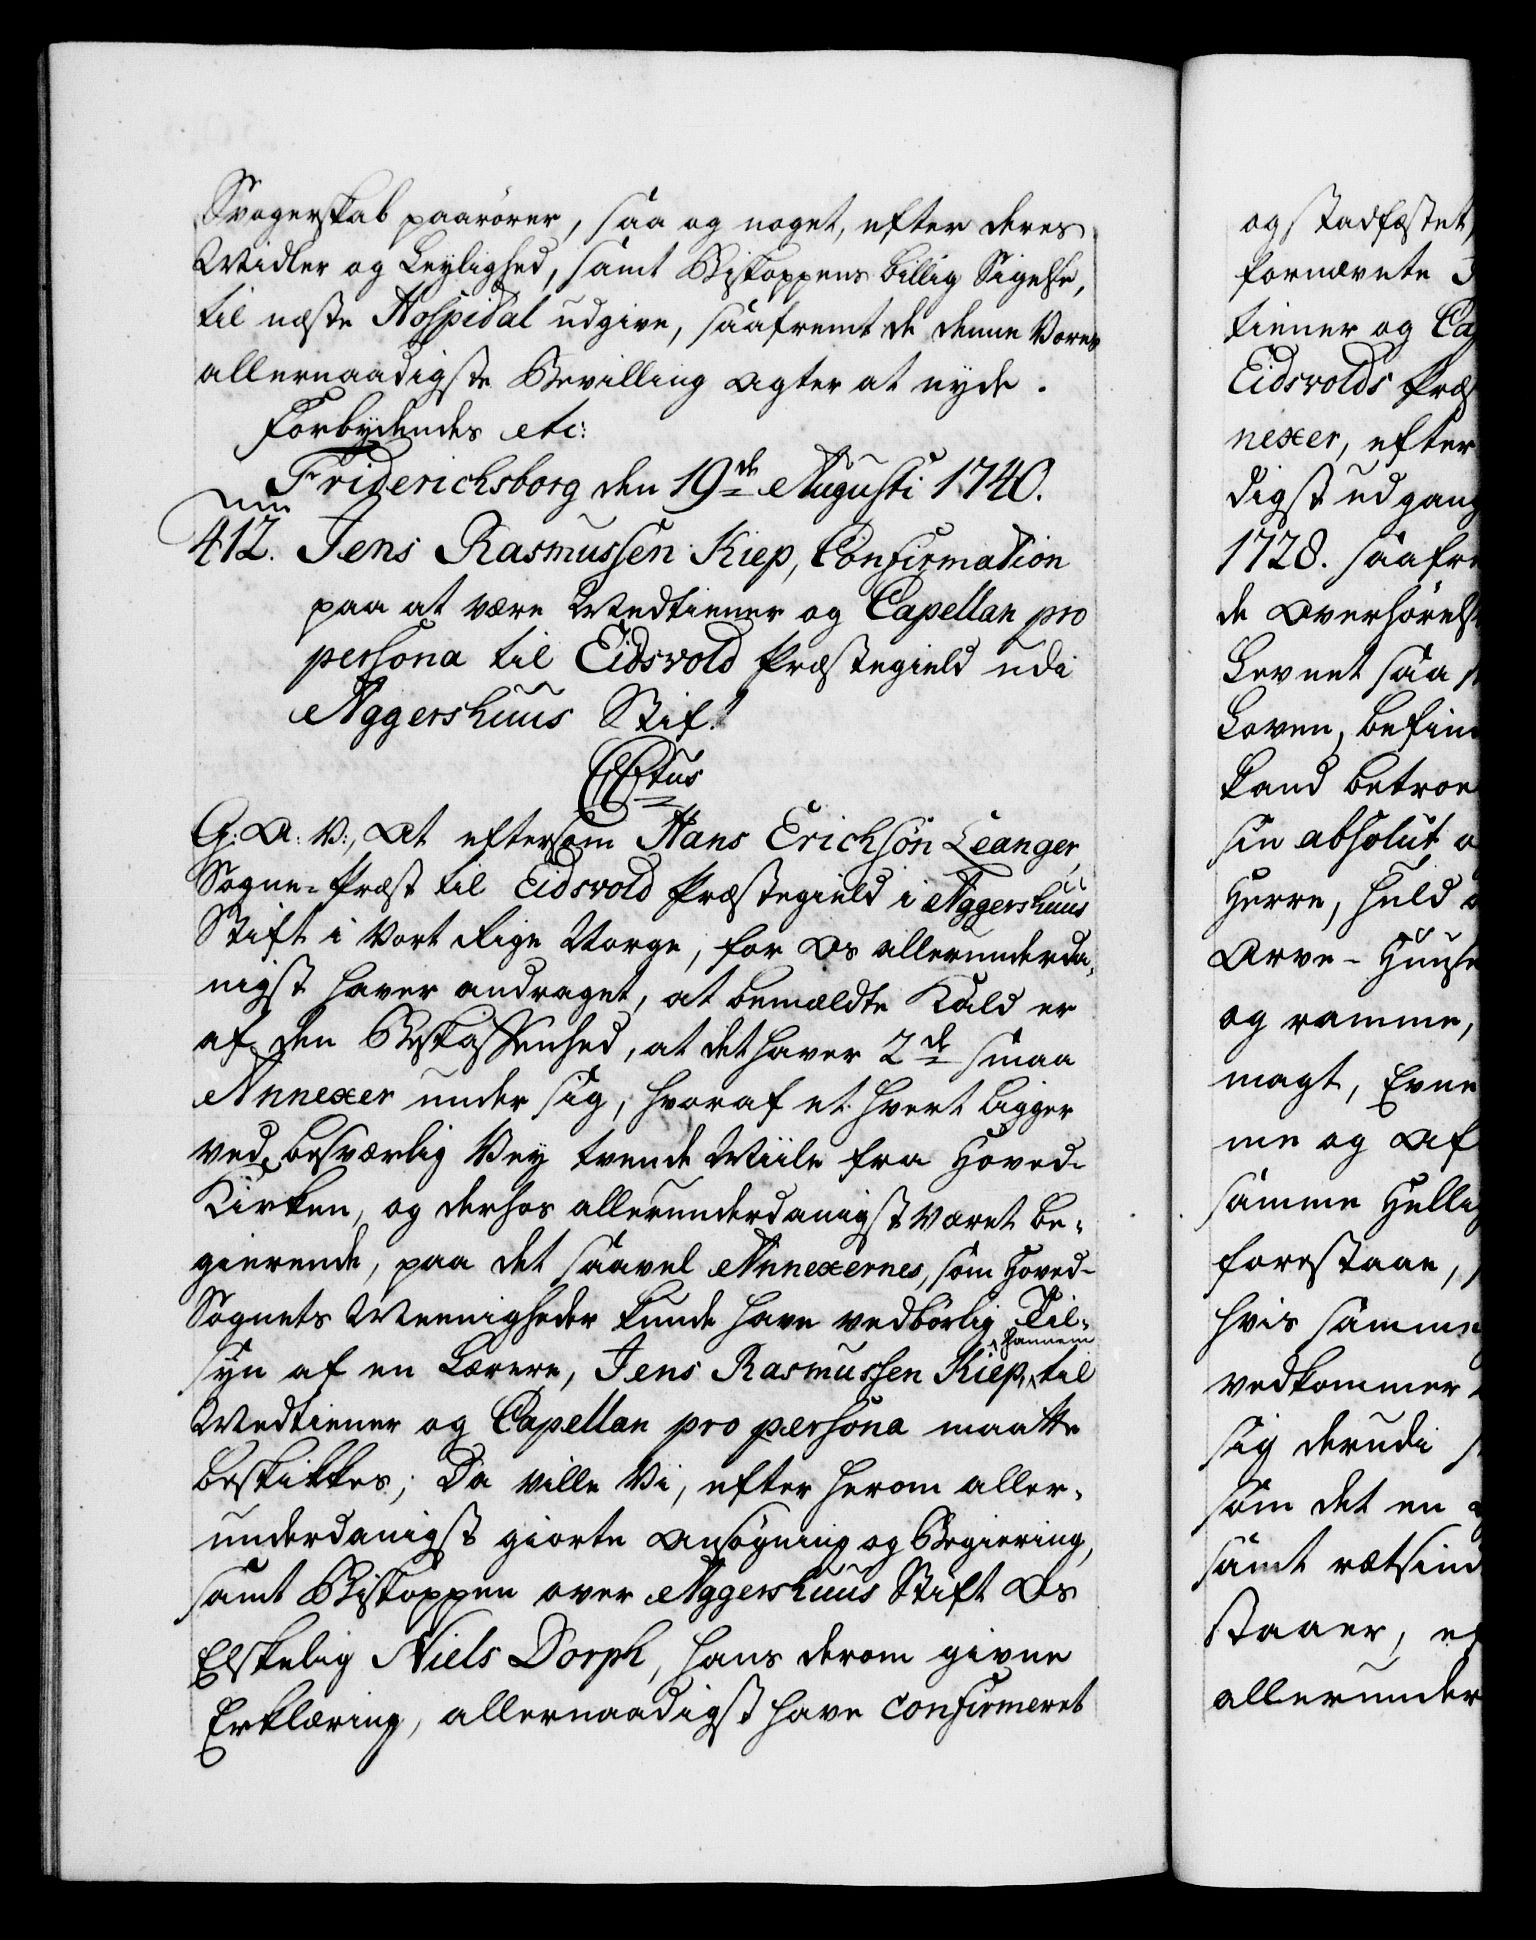 Svogerskab paarører, saa og noget, efter deres
Midler og Leylighed, samt Biskoppens billig Sigelse,
til næste Hospital udgive, saafremt de denne Vores
allernaadigste Bevilling agter at nyde.
Forbydendes etc:
Friderichsborg den 19de Augusti 1740.
412. Jens Rasmussen Kiep, Confirmation
paa at være Medtiener og Capellan pro
persona til Eidsvold Præstegield udi
Aggershuus Stift.
G: A: V:, At eftersom Hans Erichsøn Leanger,
Sogne-Præst til Eidsvold Præstegield i Aggershuus
Stift i Vort Rige Norge, for Os allerunderda-
nigst haver andraget, at bemældte Kald er
af den Beskaffenhed, at det haver 2de smaa
Annexer under sig, hvoraf et hvert ligger
ved besværlig Vey trende Miile fra Hoved-
Kirken, og derhos allerunderdanigst været be-
gierende, paa det saavel Annexernes, som Hoved-
Sognets Meenigheder kunde have vedbørlig Til-
syn af en Lærere, Jens Rasmussen Kiep, hannem til
Medtiener og Capellan pro persona maatte
beskikkes; Da ville Vi, efter herom aller-
underdanigst giorte Ansøgning og Begiering,
samt Biskoppen over Aggershuus Stift Os
Elskelig Niels Dorph, hans derom givne
Erklæring, allernaadigst have confirmeret
og stadfæstet,
fornævnte
tiener og Ca
Eidsvolds Præs
nexer, efter
digst udgang
1728. saafre
de Overhørels
Levnet saa
Loven, befin
kand betroe
sin absolut
Herre, huld
Arve-Huuse
og ramme,
magt, Evne
me og Af
samme Hellig
forestaae,
hvis samme
vedkommer
sig derudi
som det en
samt rætsind
staaer,
allerunder